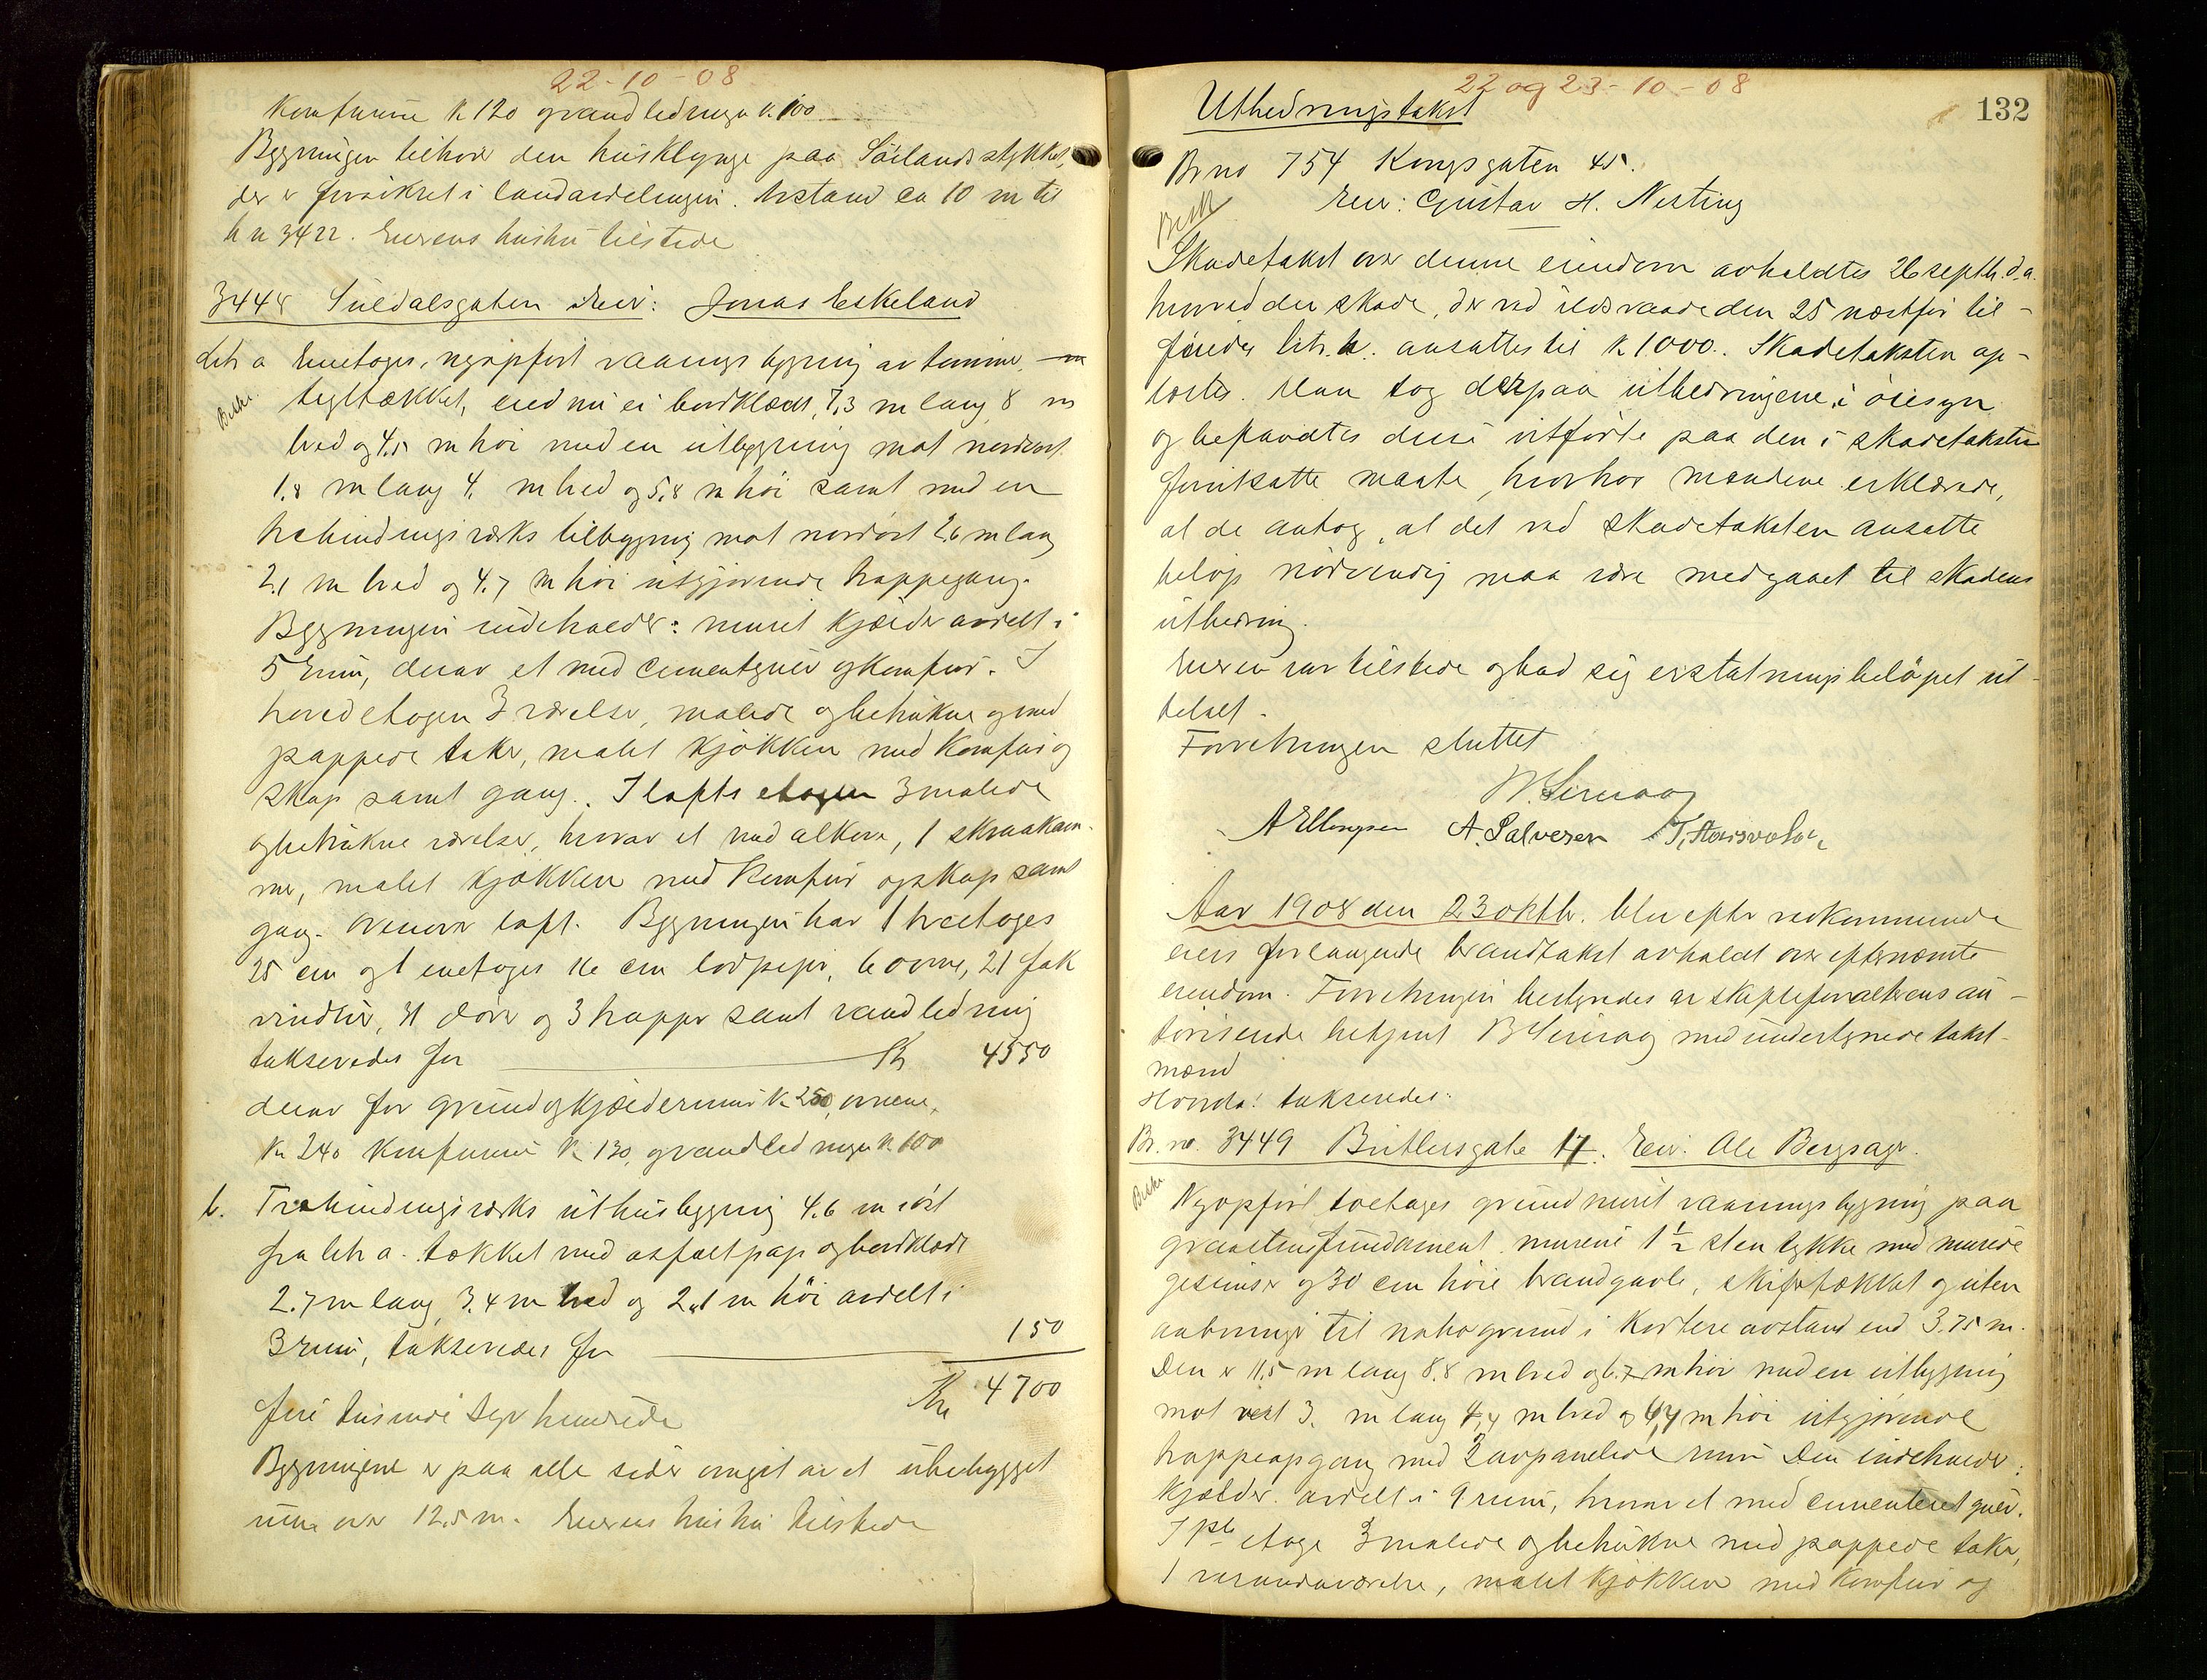 22-10-08
Komfurene k 120 og vandledningen k. 100
Bygningen tilhører den husklynge paa Sörlandsstykket,
der er forsikret i landavdelingen. Avstand ca 10 m til
br n 3422. Eierens hustru tilstede
3448 Suldalsgaten Eier: Jonas Eskeland
Litr a Enetages, nyopført vaaningsbygning av tømmer,
Besk.
tegltækket, endnu ei bordklædt, 7,3 m lang 8 m
bred og 4,5 m høi med en utbygning mot nordvest
1,8 m lang 4, m bred og 5,8 m høi samt med en
trebindingsverks tilbygning mot nordøst 2,6 m lang
2,1 m bred og 4,7 m høi utgjørende trappegang.
Bygningen indeholder: muret kjælder avdelt i
5 rum, derav et med cementgulv og komfur. I
hovedetagen 3 værelser, malede og betrukne og med
pappede taker, malet kjøkken med komfur og
skap samt gang. I loftsetagen 3 malede
og betrukne værelser, hvorav et med alkove, 1 skraakam-
mer, malet kjøkken med komfur og skap samt
gang. Ovenover loft. Bygningen har 1 toetages
25 cm og 1 enetages 16 cm lodpipe, 6 ovne, 21 fak
vinduer, 31 døre og 3 trapper samt vandledning
takseredes for Kr 4550
derav for grund og kjældermur k 250, ovnene
Kr 240 komfurene k 130, og vandledningen k 100
b. Trebindingsverks uthusbygning 4.6 m øst
fra litr a. tækket med asfaltpap og bordklædt
2.7 m lang, 3.4 m bred og 2,1 m höi avdelt i
3 rum, takseredes for 150
Kr 4700
fire tusinde syv hundrede
Bygningene er paa alle sider omgit av et ubebygget
rum over 12.5 m. Eierens hustru tilstede
22 og 23-10-08
132
Utbedringstakst
Br no 754 Kongsgaten 45.
Eier: Gustav H. Nesting
Besk
Skadetakst over denne eiendom avholdtes 26 septbr. d.a.
hvorved den skade, der ved ildsvaade den 25 næstfør til-
føiedes litr. a. ansattes til k 1000. Skadetaksten op-
læstes. Man tog derpaa utbedringene i øiesyn
og befandtes disse utførte paa den i skadetaksten
forutsatte maate, hvorhos mændene erklærede,
at de antog, at det ved skadetaksten ansatte
beløp nødvendig maa være medgaaet til skadens
utbedring.
Eieren var tilstede og bad sig erstatningsbeløpet ut-
betalt.
Forretningen sluttet
A Ellingsen A. Salvesen
Aar 1908 den 23 oktbr. blev efter vedkommende
eiers forlangende brandtakst avholdt over efternævnte
eiendom. Forretningen bestyredes av skifteforvalterens au-
toriserede betjent med undertegnede takst-
mænd
Hvorda: takseredes:
Br. no. 3449 Butlersgate 17. Eier: Ole Bergsager.
Besk.
Nyopført toetages grundmuret vaaningsbygning paa
graastensfundament. murene 1 1/2 sten tykke med murede
gesimser og 30 cm høie brandgavle, skifertækket og uten
aabninger til nabogrund i kortere avstand end 3.75 m.
Den er 11,5 m lang 8.8 m bred og 6.7 m høi med en utbygning
mot vest 3. m lang 4,4 m bred og 4,4 m høi utgjørende
trappeopgang med 2 avpanelede rum Den indeholder:
Kjælder. avdelt i 9 rum, hvorav et med cementeret gulv.
I 1ste etage 3 malede og betrukne med pappede taker,
1 verandaværelse, malet kjøkken med komfur og